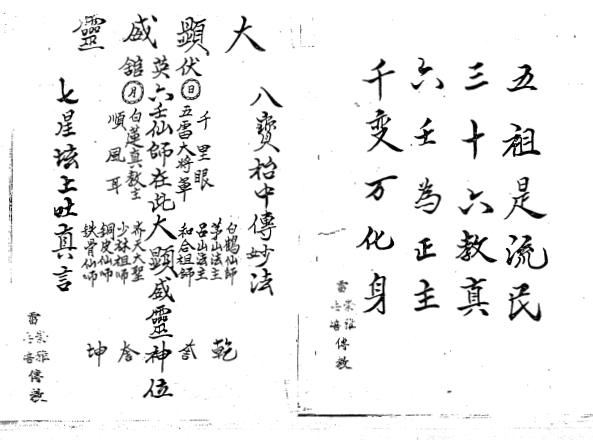 五祖是流民
三十六教真
六壬為正主
千变万化身
傳教
大顯威靈
八寳枱中傳妙法
伏英舘
日
月
千里眼
五雷大將軍
六壬仙師在此大顯威靈神位
白蓮真教主
順風耳
白鶴仙師
茅山法主
呂山法主
和合祖師
齊天大聖
少林祖師
銅皮仙師
鉄骨仙師
乾
坤
七星坛上吐真言
傳教